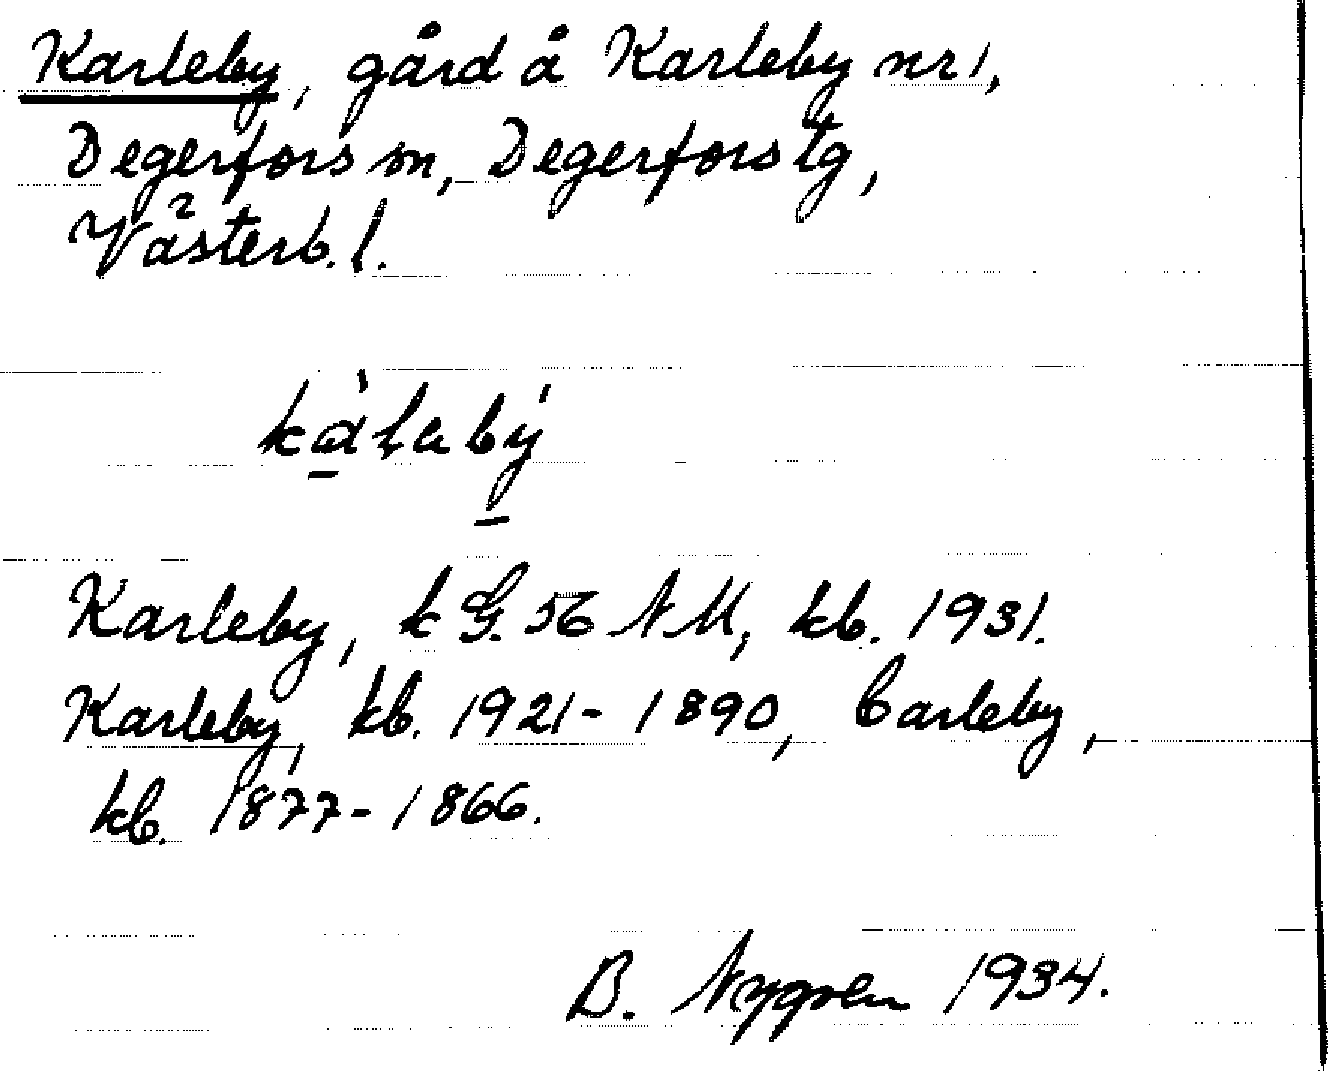 Karleby, gård å Karleby nr 1,
Degerfors sn, Degerfors tg,
Västerb. l.
kàlabý
Karleby, k G. 56 NM, kb. 1931.
Karleby, kb. 1921-1890, Carleby,
kb. 1877-1866.
B. Nygren 1934.